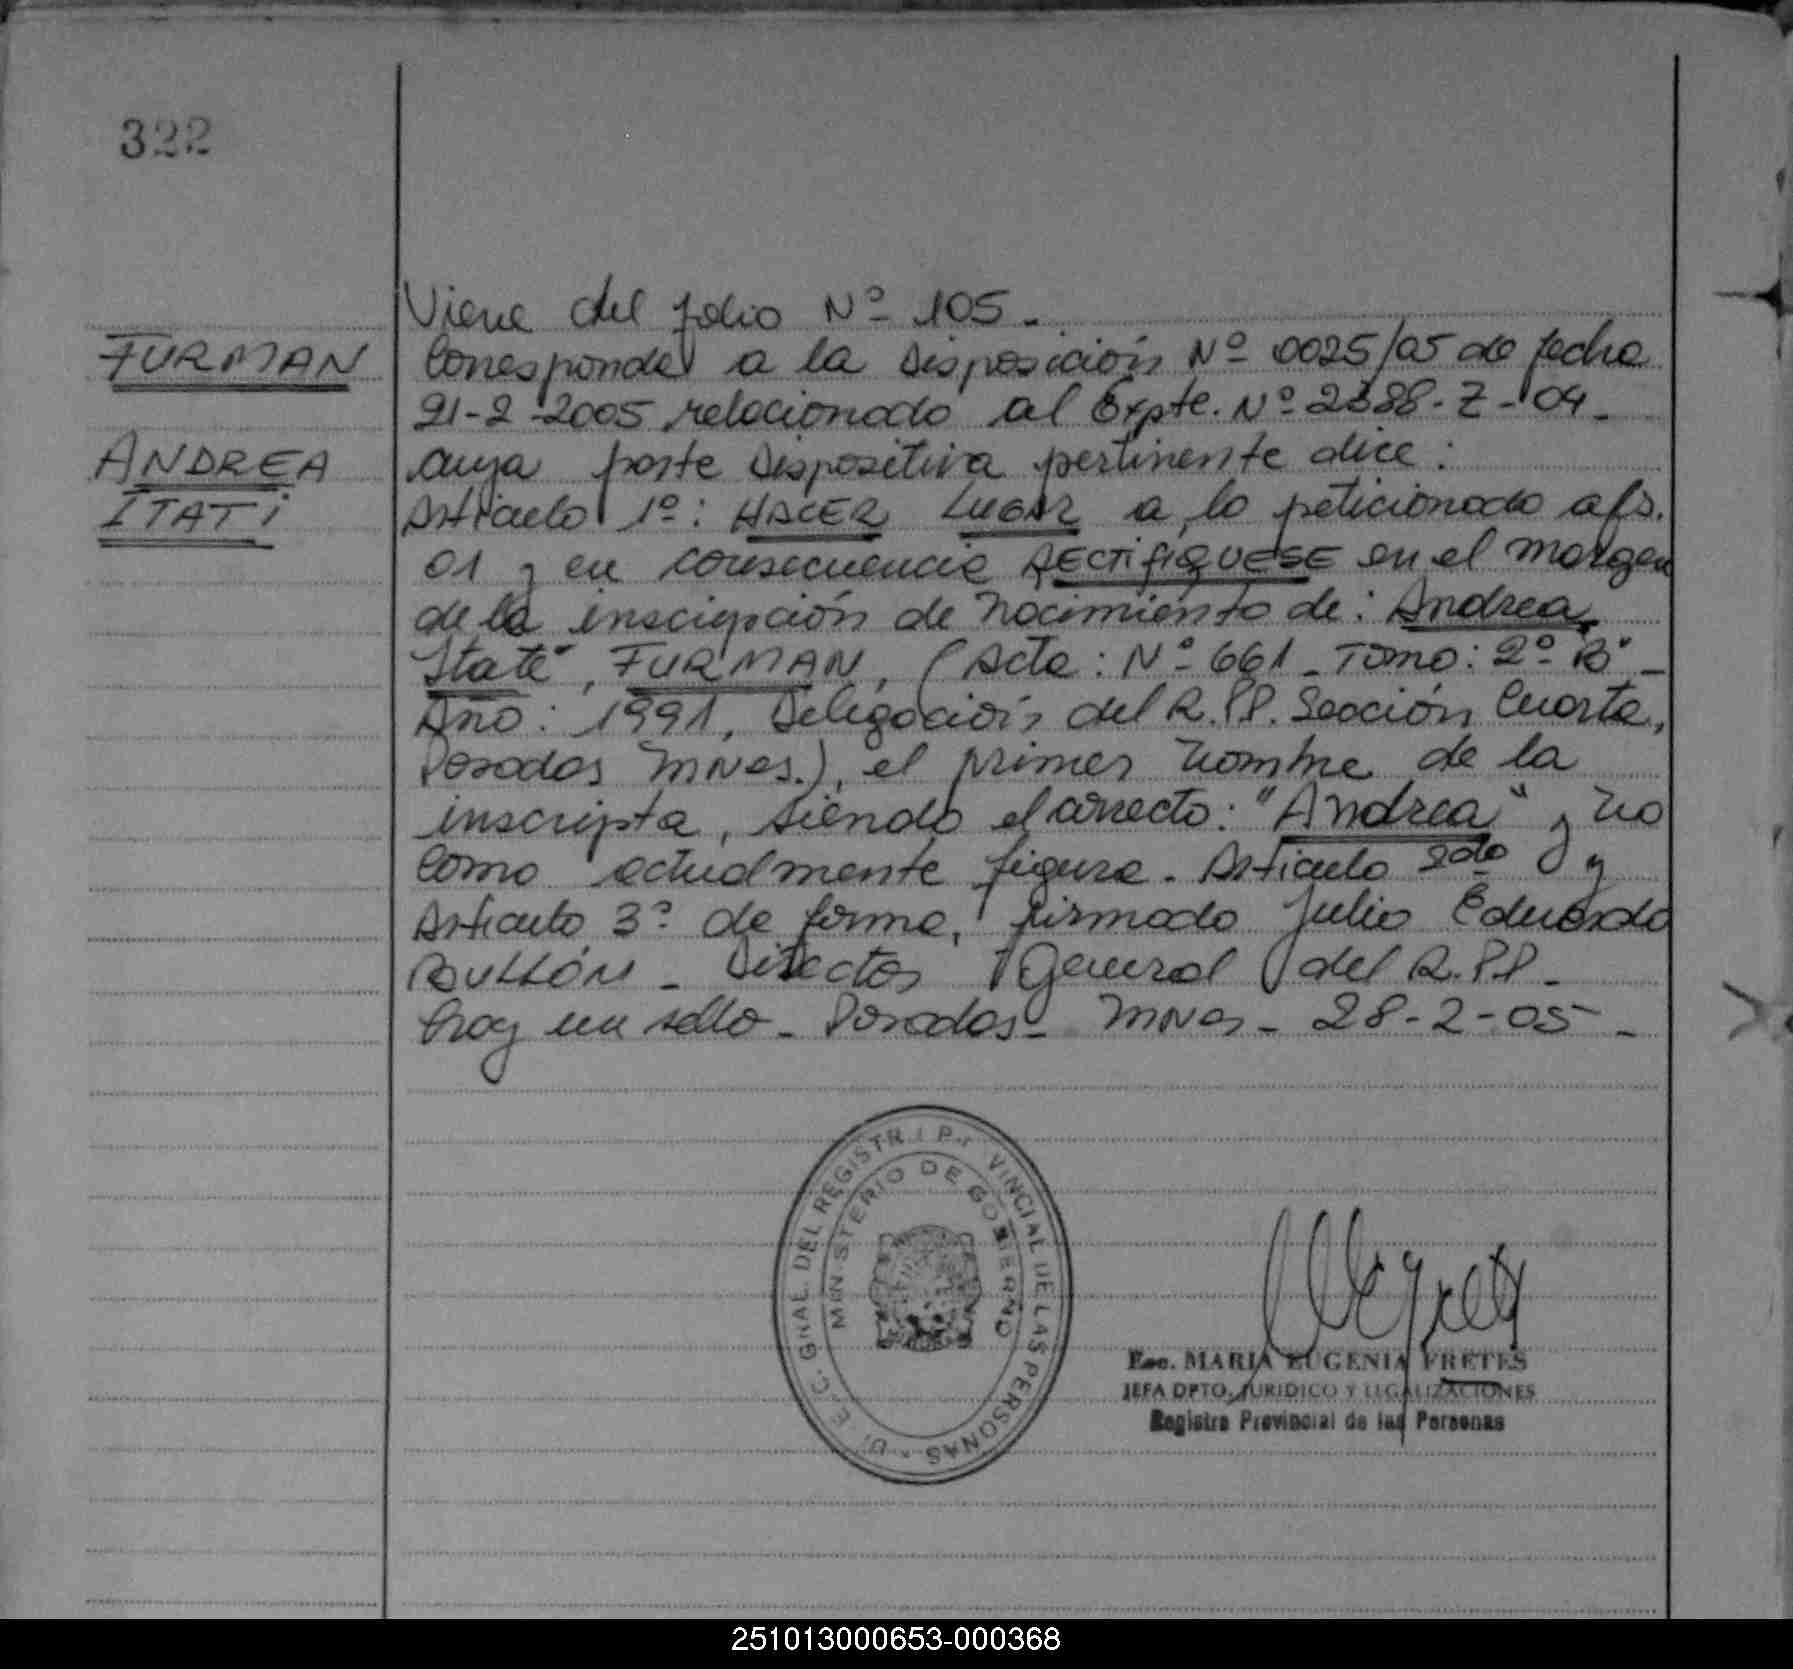 322
FURMAN
ANDREA
ITATi
Viene del folio Nº 105.
Corresponde a la Disposición Nº 0025/05 de fecha
21-2-2005 relacionado al Expte. Nº 2388-Z-04.
cuya parte Dispositiva pertinente dice:
Articulo 1º: HACER LUGAR a lo peticionado a fs.
01 y en consecuencia RECTIFIQUESE en el margen
de la inscripción de nacimiento de: Andrea
Itatí, FURMAN, (Acta: Nº 661 - Tomo: 2º B -
Año: 1991, Delegación del R.P.P. Sección Cuarta,
Posadas Mnes.), el primer nombre de la
inscripta, siendo el correcto: "Andrea" y no
como actualmente figura. Articulo 2do y
Articulo 3º de forma, firmado Julio Eduardo
BULLÓN - Director General del R.P.P -
hay un sello - Posadas - Mnes - 28-2-05 -
DIREC. GRAL. DEL REGISTRO PROVINCIAL DE LAS PERSONAS
MINISTERIO DE GOBIERNO
Esc. MARIA EUGENIA FRETES
JEFA DPTO. JURIDICO Y LEGALIZACIONES
Registro Provincial de las Personas
251013000653-000368